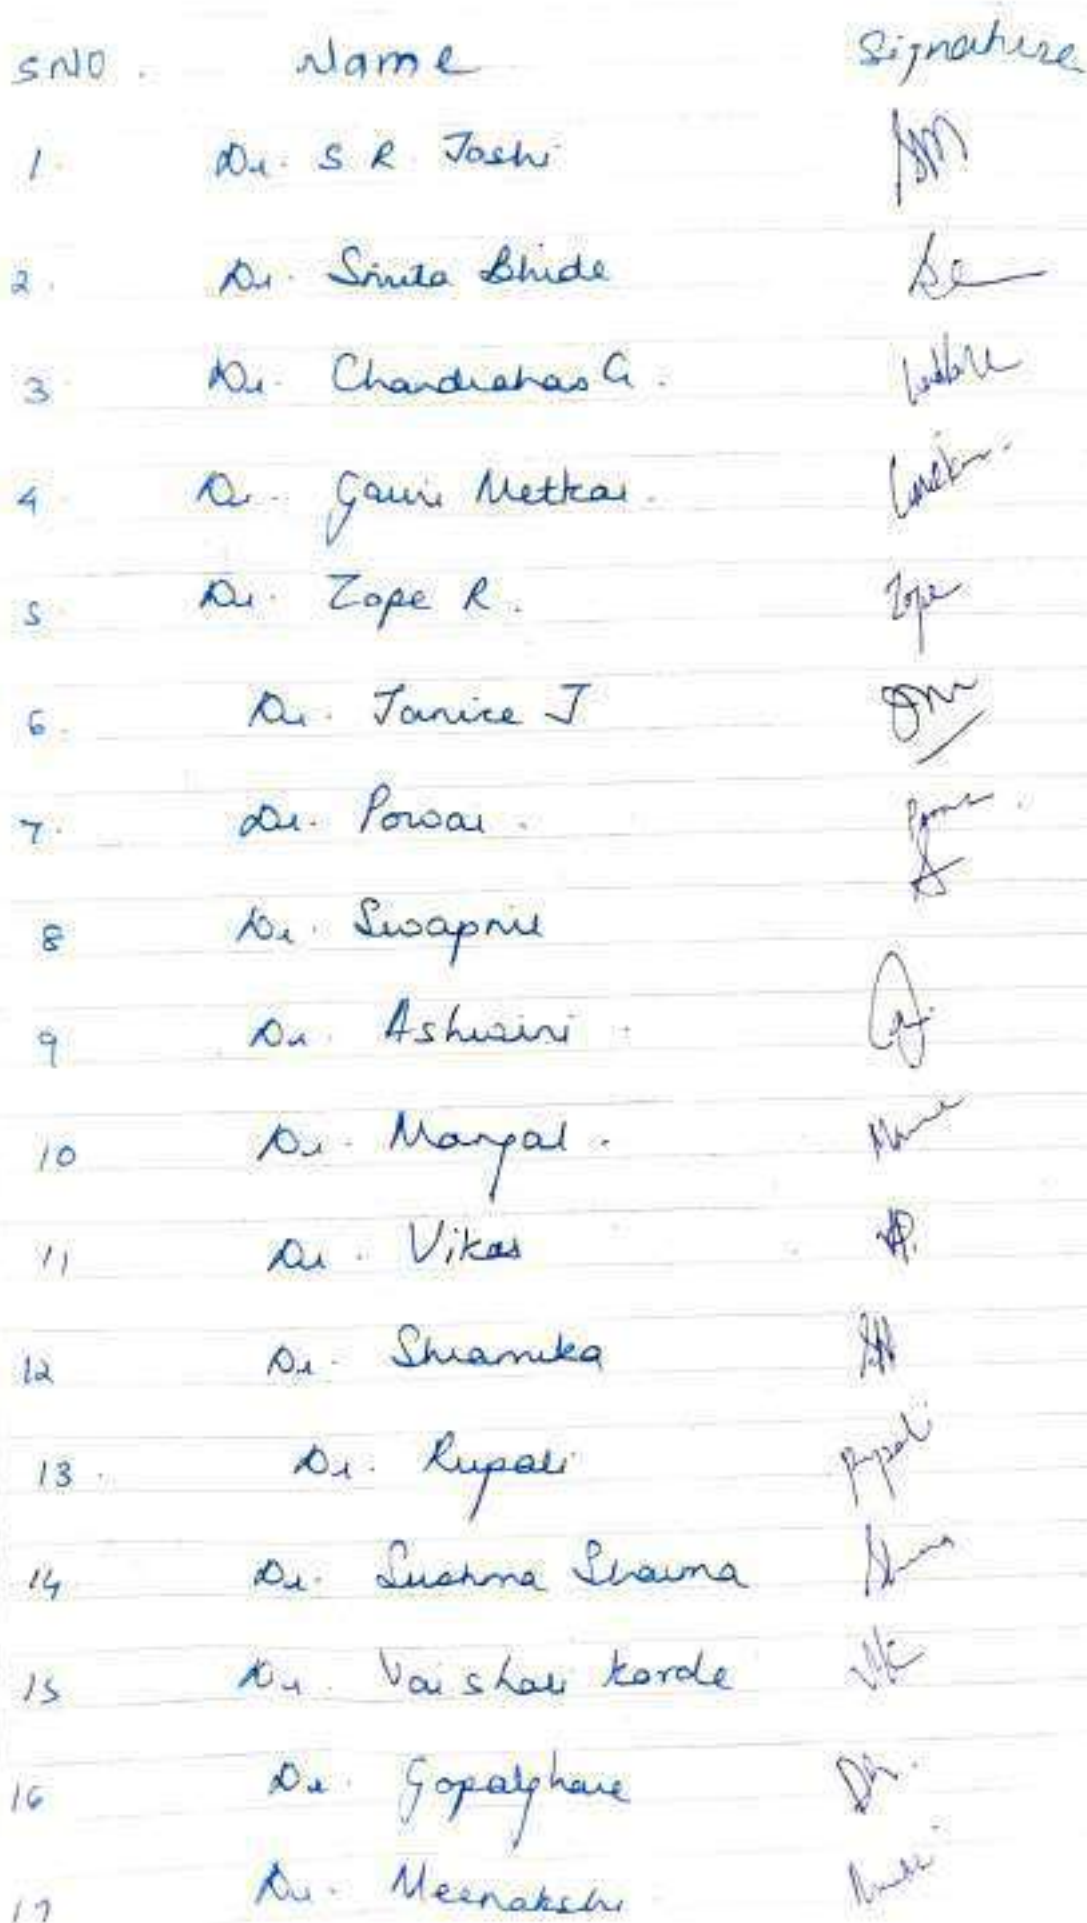 SNO. Name Signature
1. Dr. S R Joshi
2. Dr. Smita Bhide
3 Dr. Chandrahas G.
4 Dr. Gauri Metkar.
5. Dr. Zope R. Zope
6. Dr. Janice J
7. Dr. Powar.
8 Dr. Swapnil
9 Dr. Ashwini
10 Dr. Mangal.
11 Dr. Vikas
12 Dr. Shramika
13. Dr. Rupali Rupali
14 Dr. Sushma Sharma
15 Dr. Vaishali Karde
16 Dr. Gopalghare
17 Dr. Meenakshi